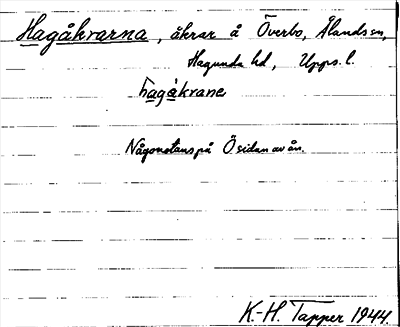 Hagåkrarna, åkrar å Överbo, Ålands sn,
Hagunda hd, Upps. l.
hagåkrane
Någonstans på Ö sidan av ån.
K.-H. Tapper 1944.